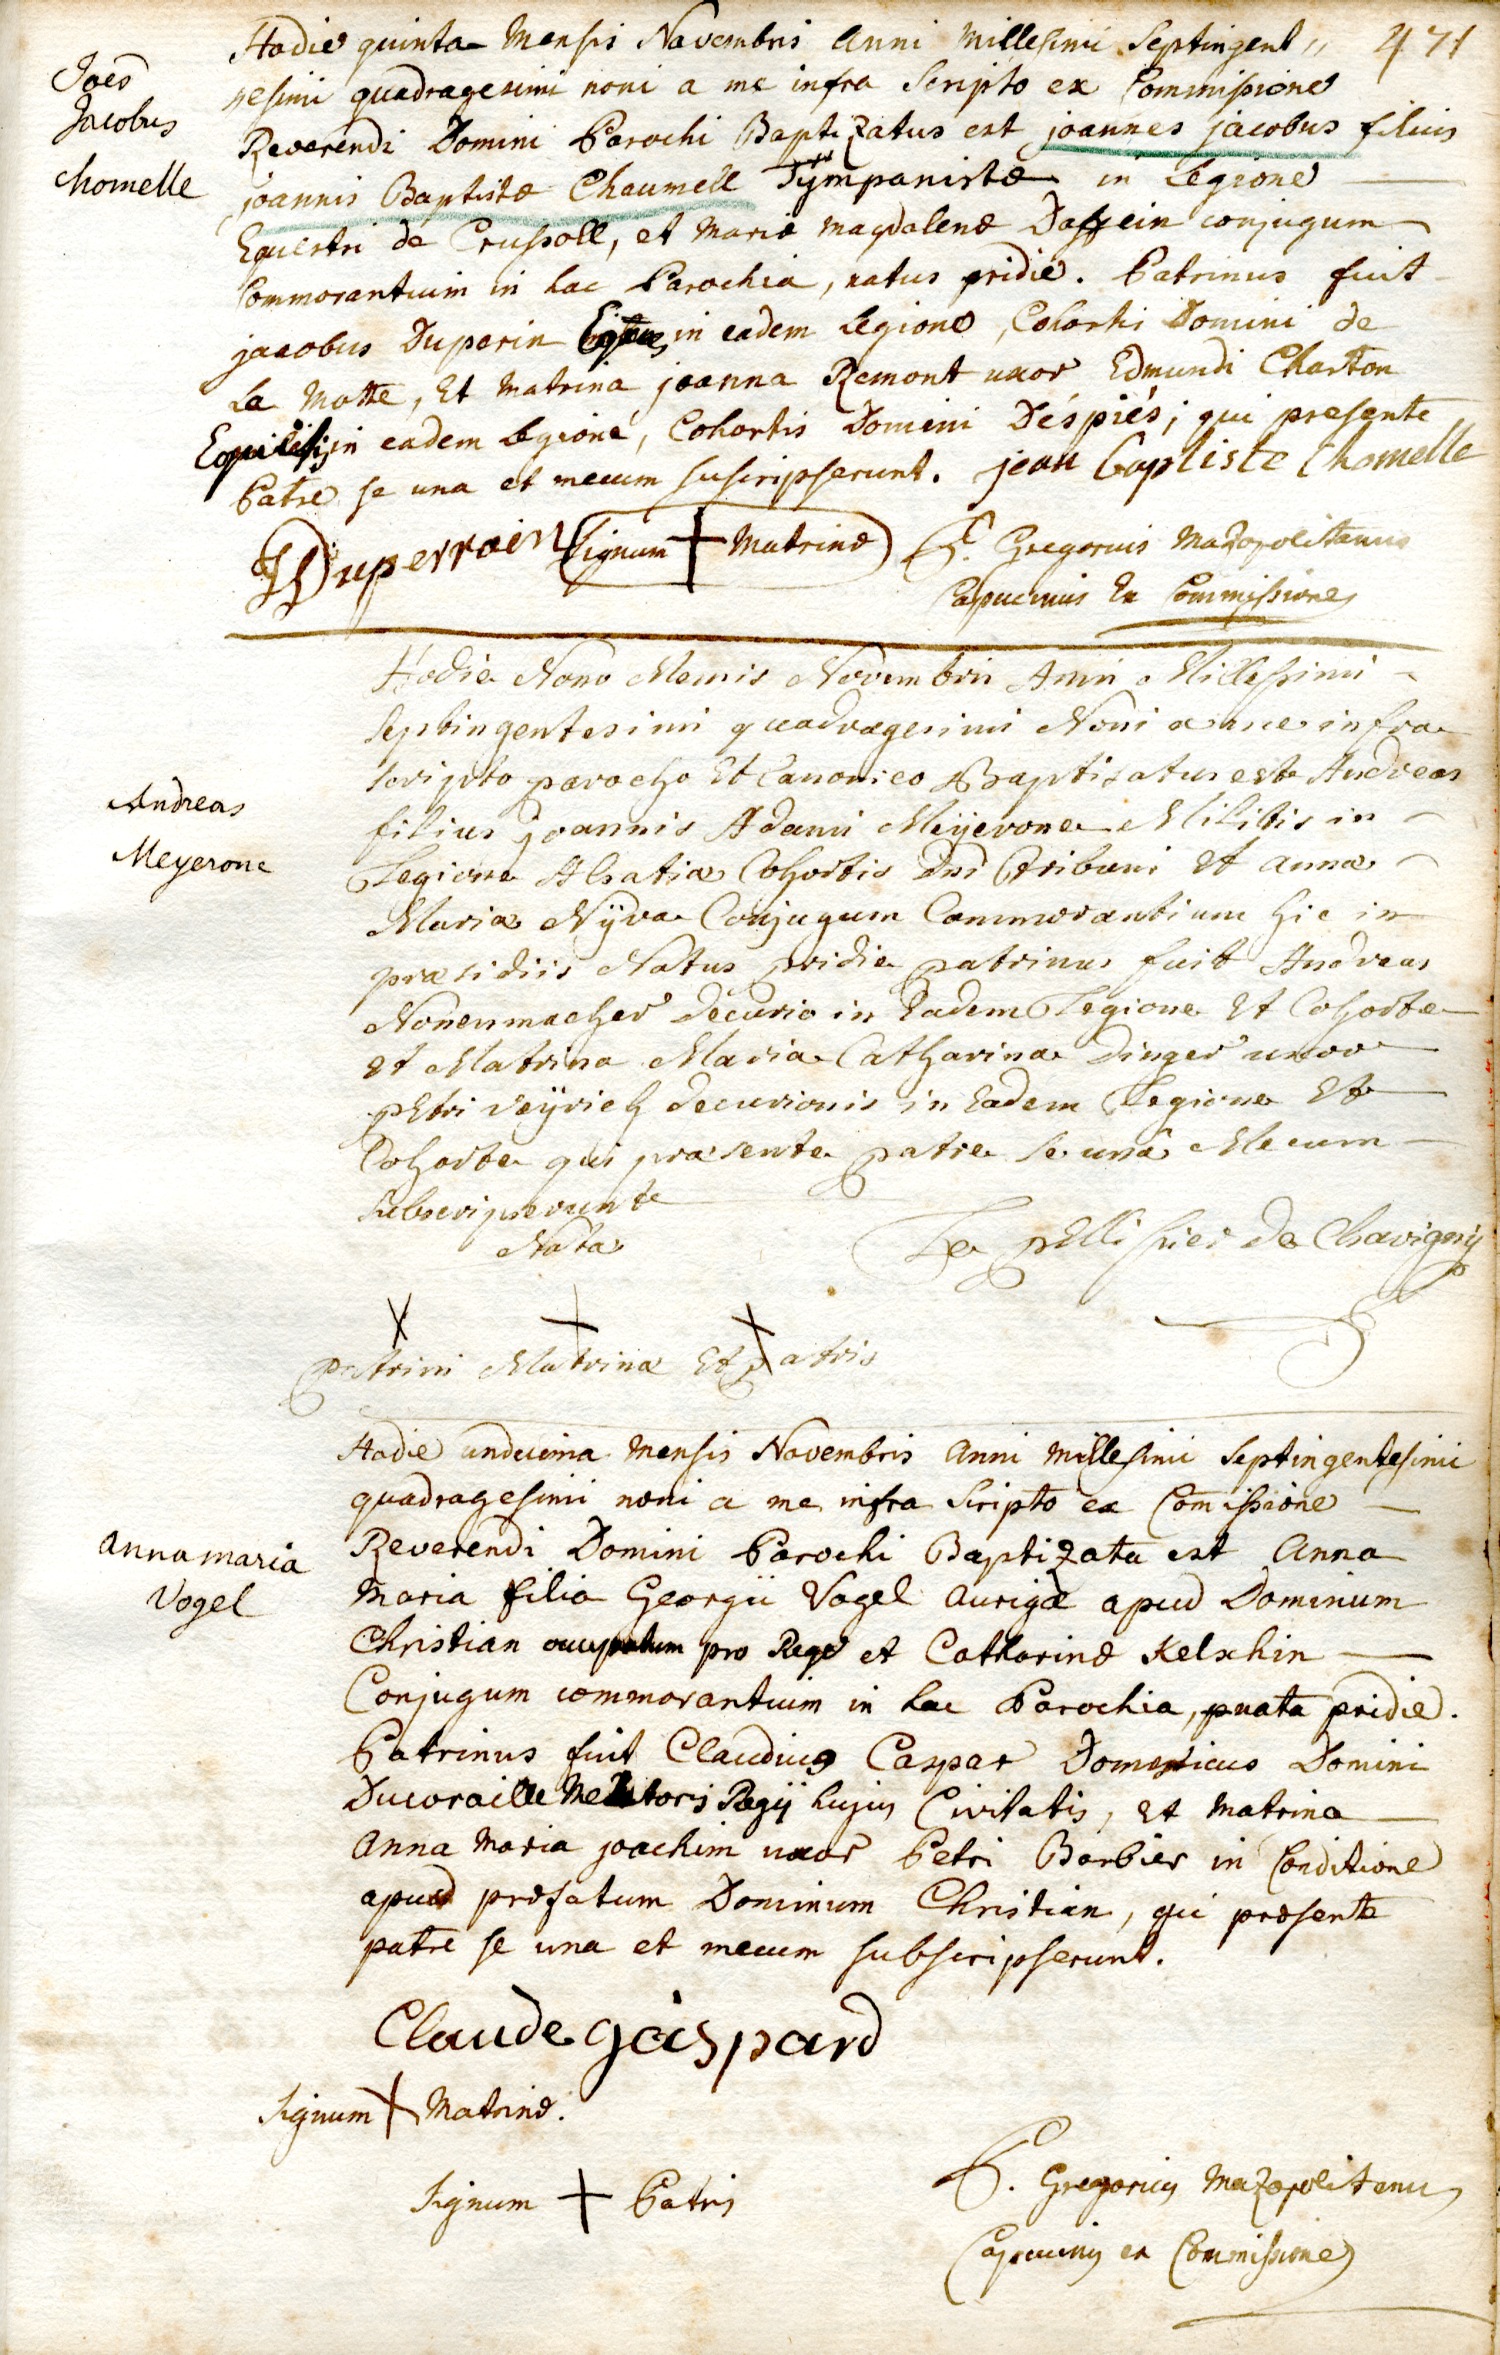 471
Hodie quinta Mensis Novembris Anni Millesimi Septingent"
nesimi quadragesimi noni a me infra Scripto ex Commissione
Reverendi Domini Parochi Baptizatus est joannes jacobus filius
joannis Baptistæ Chaumell Tympanistæ in Legione
Equestri de Crussoll, et Mariæ Magdalenæ conjugum
Commorantium in hac Parochia, natus pridie. Patrinus fuit
jacobus Duperin Eques in eadem Legione, Cohortis Domini de
La Motte, Et Matrina joanna Remont uxor Edmundi Charton
Equitis in eadem Legione, Cohortis Domini Déspiés; qui presente
Patre se una et mecum suscripserunt. jean baptiste Chomelle
Joês
Jacobus
Chomelle
JDuperroin Signum + Matrinæ P. Gregorius Mazopolitanus
Capucinus Ex Commissione
Hodie Nono Mensis Novembris Anni Millessimi
septingentesimi quadragesimi Noni a me infra
scripto parocho Et Canonico Baptisatus est Andreas
filius joannis Adami Meÿerone Militis in
Legione Alsatiæ Cohortis Dni Tribuni Et annæ
Mariæ Nÿva Conjugum Commorantium hic in
præsidiis Natus pridie patrinus fuit Andreas
Nonenmacher decurio in Eadem Legione Et Cohorte
et Matrina Maria Catharina Dinger uxor
pEtri Veÿrich decurionis in Eadem Legione Et
Cohorte qui præsente patre se unâ Mecum
subscripserunt
Andreas
Meyerone
Nota
Le pEllissier de Chavigny
X + X
patrini Matrinæ Et patris
Hodie undecima Mensis Novembris Anni Millesimi Septingentesimi
quadragesimi noni a me infra Scripto ex Comissione
Reverendi Domini Parochi Baptizata est Anna
Maria filia Georgii Vogel Aurigæ apud Dominum
Christian occupatum pro Rege et Catharinæ Kelschin
Conjugum commorantium in hac Parochia, nata pridie.
Patrinus fuit Claudius Caspar Domesticus Domini
Ducoraille Regii hujus Civitatis, et Matrina
Anna Maria joachim uxor Petri Barbier in Conditione
apud præfatum Dominum Christian, qui præsente
patre se una et mecum subscripserunt.
Anna maria
Vogel
Claude gaspard
Signum + Matrinæ.
Signum + Patris
P. Gregorius Mazopolitanus
Capucinus ex Commissione